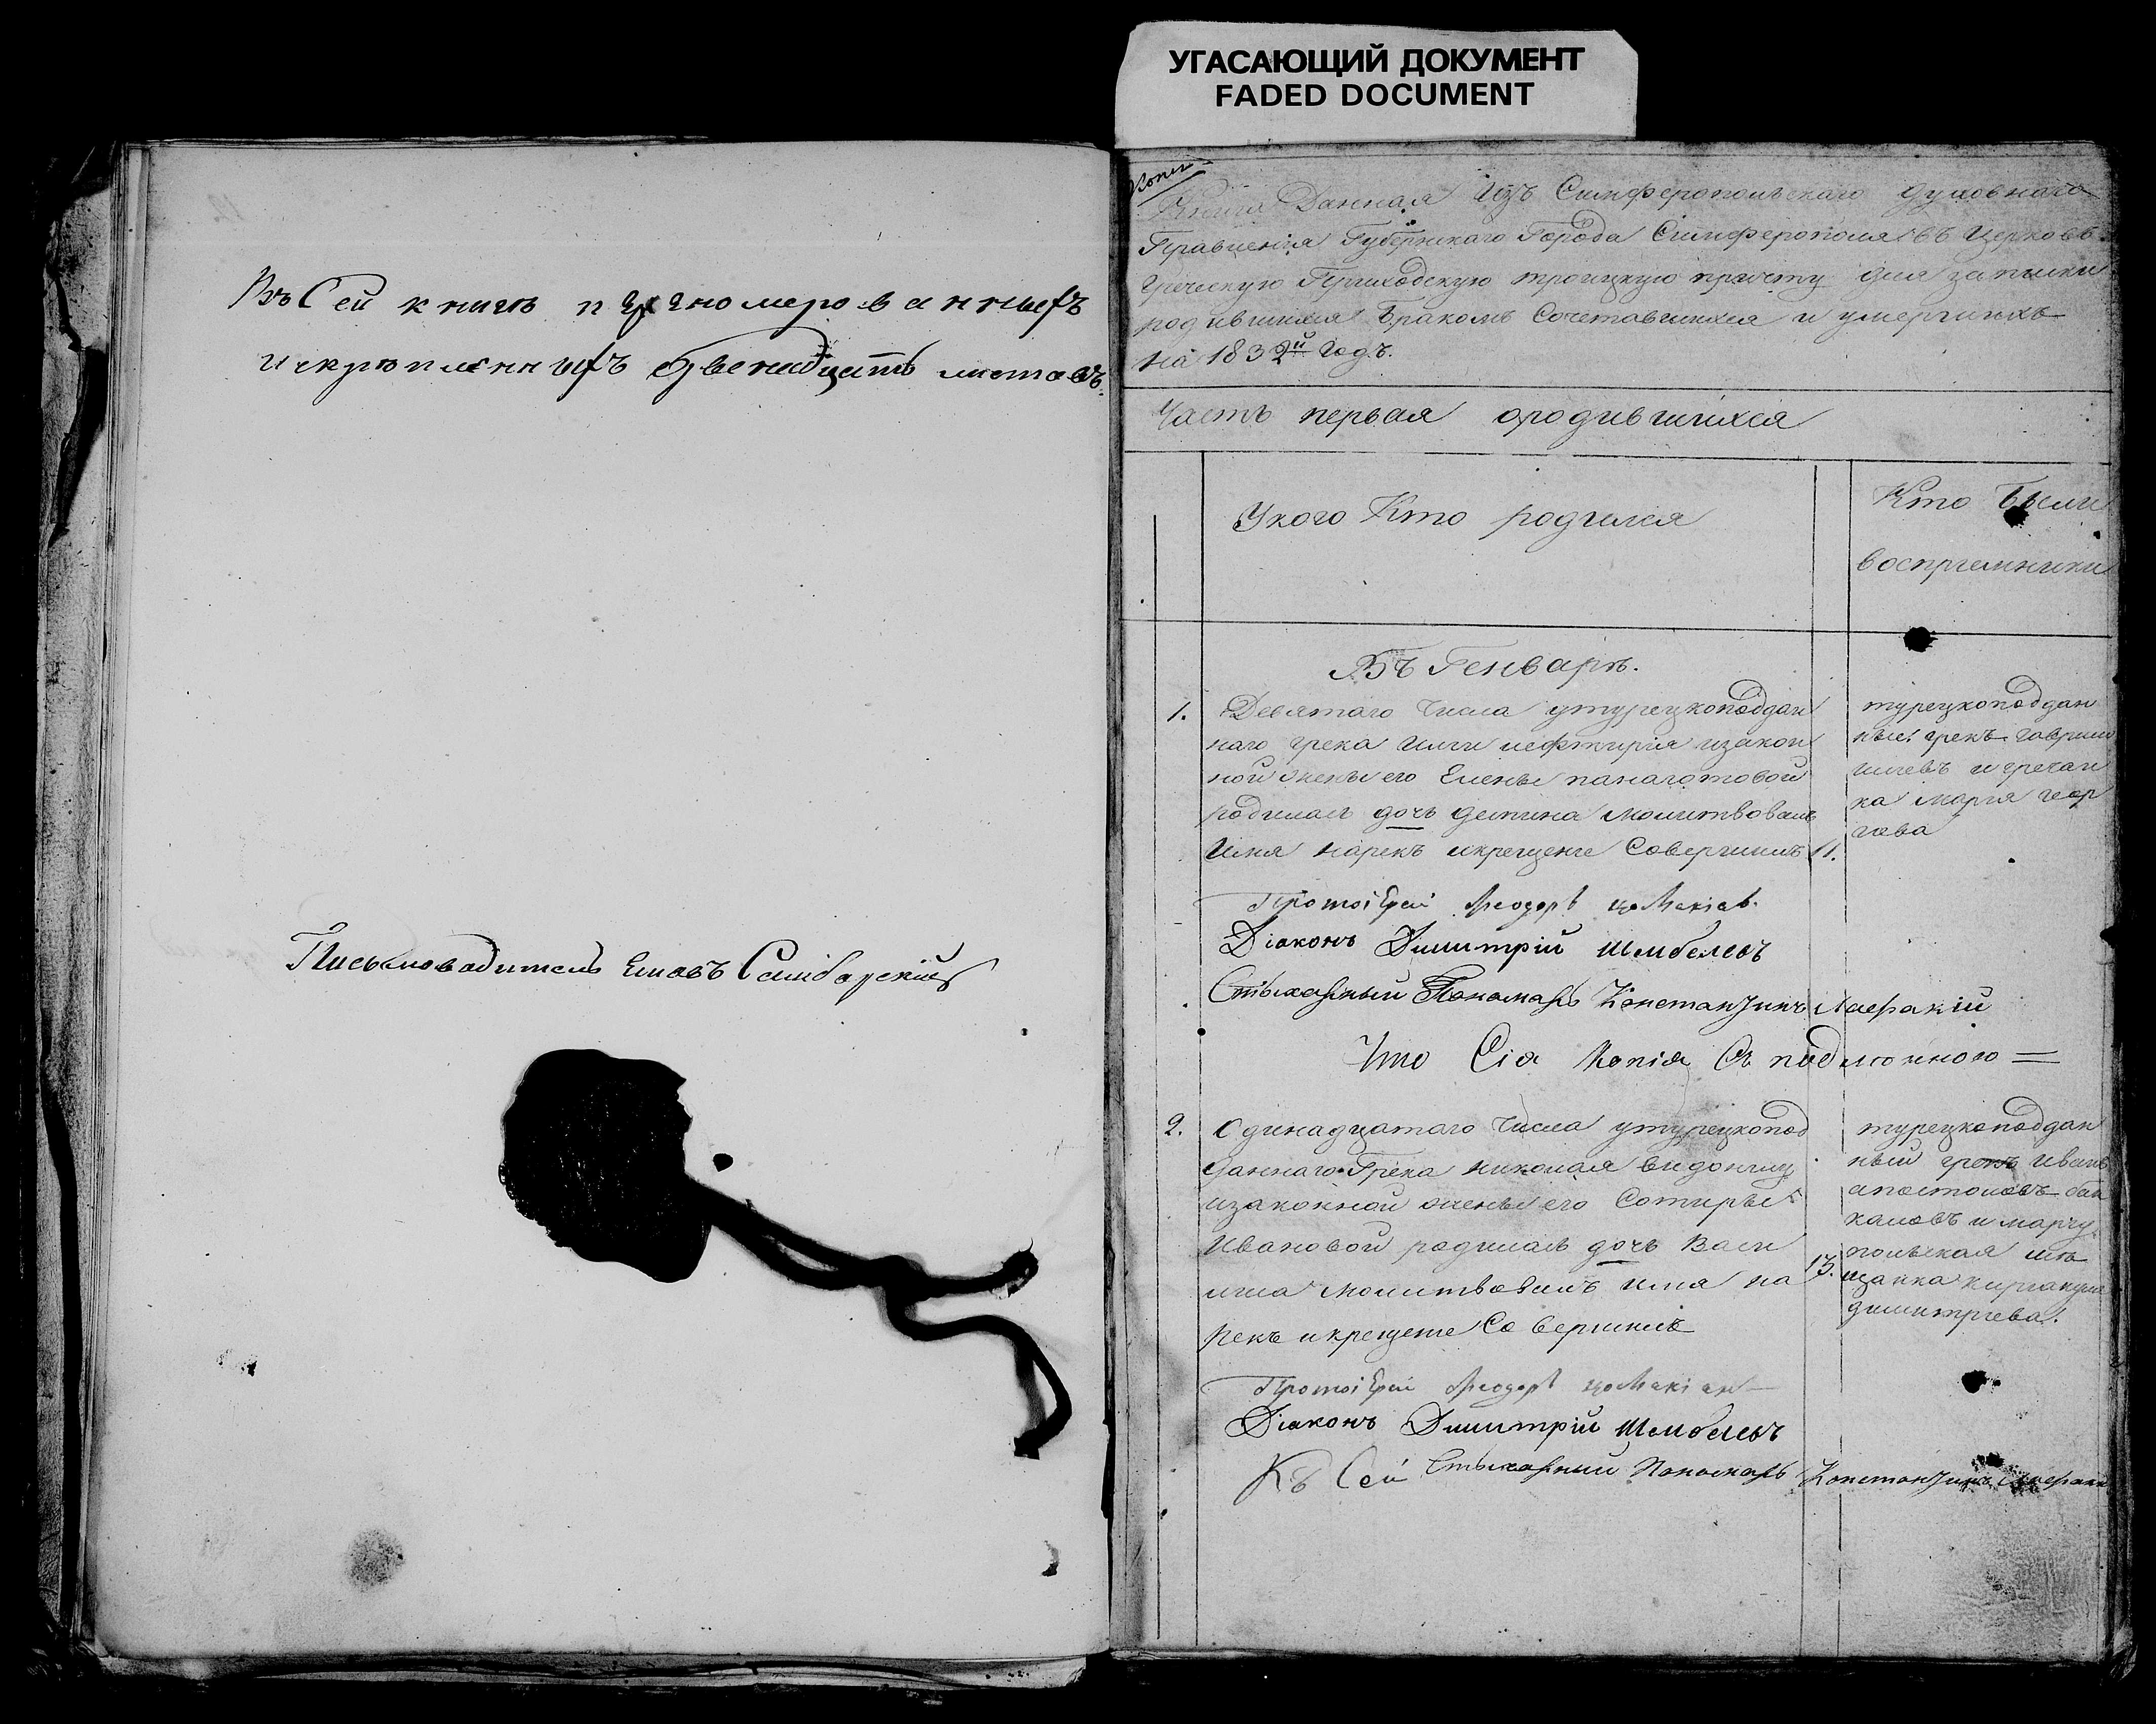 УГАСАЮЩИЙ ДОКУМЕНТ
FADED DOCUMENT
Въ Сей книгѣ пронумерованныхъ
и скрѣпленныхъ двенадцать листовъ.
Письмоводитель
Копія
Книга Данная Изъ Симферопольскаго духовнаго
Правленія Губернскаго Города Симферополя въ Церковь
греческую Приходскую троицкую причту для записки
родившихся Бракомъ Сочетавшихся и умершихъ
на 1832й Годъ.
Часть первая ородившихся
Укого Кто родился
Кто Были
восприемники
Въ Генварѣ.
1. Девятаго Числа утурецкоподдан
наго грека Ильи изакон
ной жены его Елены панаготовой
родилась дочь деспина молитвовалъ
Имя нарекъ икрещение Совершилъ 11.
турецкоподдан
ные грекъ гаврил
илиевъ игречан
ка мария геор
гова
Протоіерей Ѳеодоръ
Діаконъ Димитрій
Стихарный Пономарь Константинъ
Что Сія Копія Съ подлинною =
2. Одинадцатаго Числа утурецкопод
даннаго Грека николая
изаконной жены его Сотиры
Ивановой родилась дочь Васи
лиса молитвовалъ имя на 13.
рекъ икрещение Совершилъ
турецкоподдан
ный грекъ иванъ
апостоловъ бак
каловъ и мариу
польская мѣ
щанка кириакула
димитриева.
Протоіерей Ѳеодоръ
Діаконъ Димитрій
Къ Сей Стихарный Пономарь Константинъ